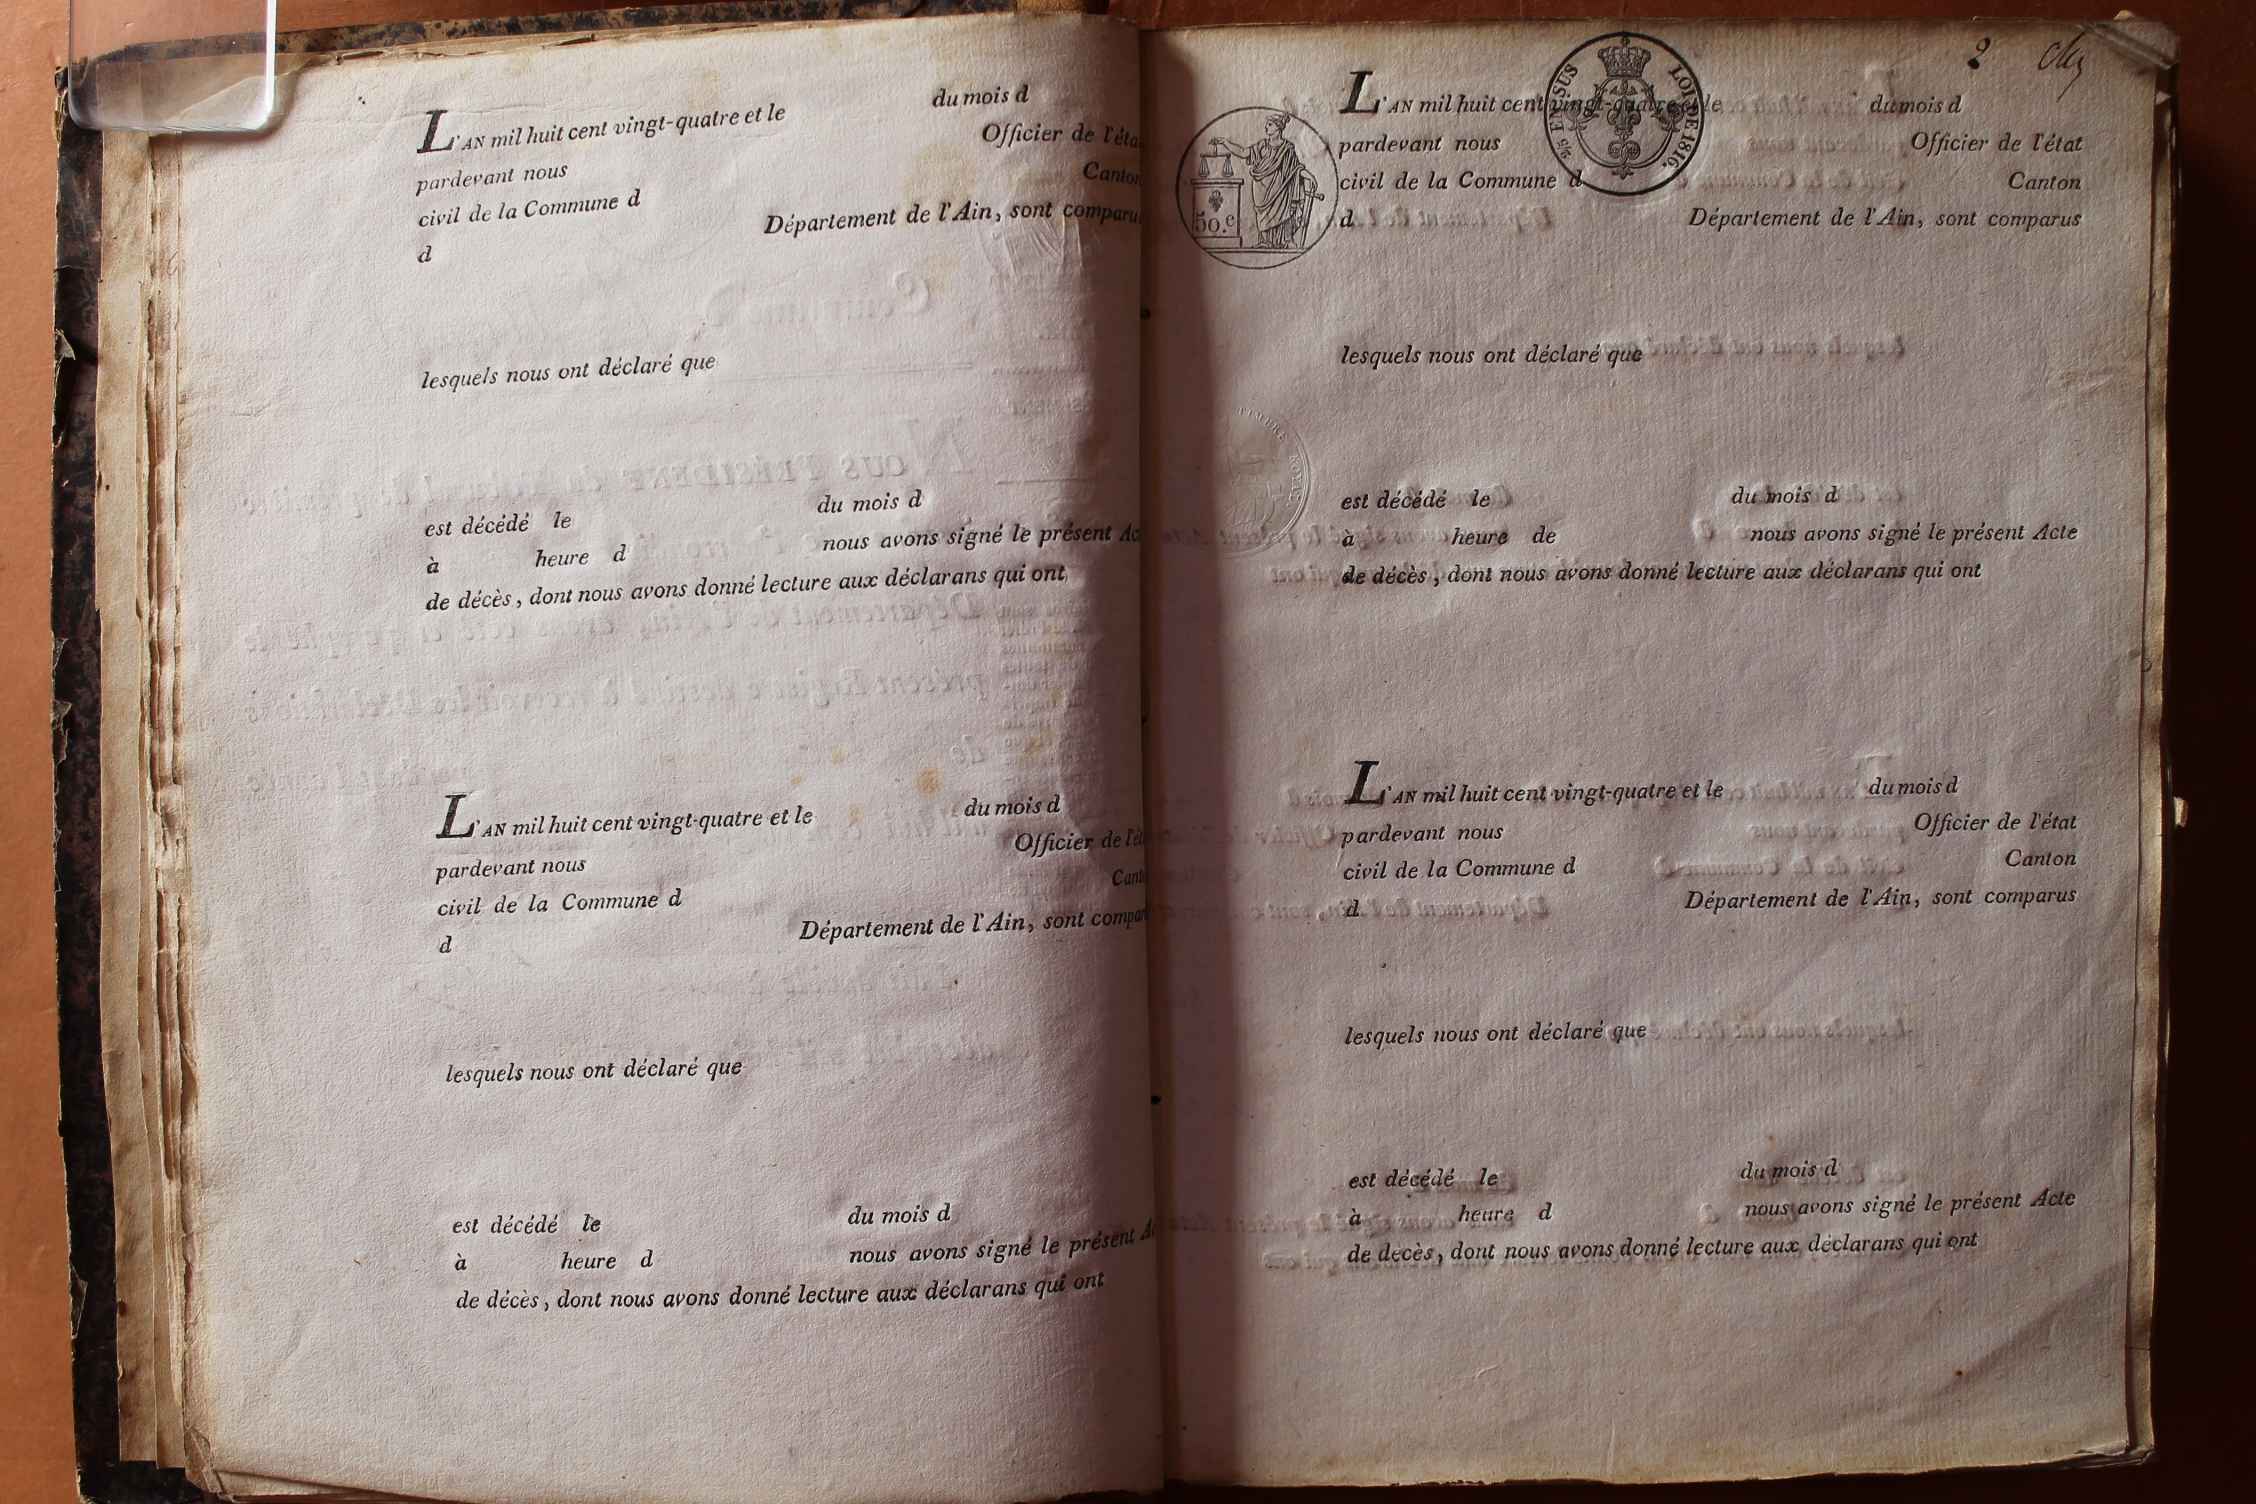 L'AN mil huit cent vingt-quatre et le du mois d
pardevant nous Officier de l'éta
civil de la Commune d Canton
d Département de l'Ain, sont comparu
lesquels nous ont déclaré que
est décédé le du mois d
à heure d nous avons signé le présent Ac
de décès, dont nous avons donné lecture aux déclarans qui ont
L'AN mil huit cent vingt-quatre et le du mois d
pardevant nous Officier de l'ét
civil de la Commune d Cant
d Département de l'Ain, sont compar
lesquels nous ont déclaré que
est décédé le du mois d
à heure d nous avons signé le présent A
de décès, dont nous avons donné lecture aux déclarans qui ont
2
EN SUS LOI DE 1816.
50.c
TIMBRE ROYAL
L'AN mil huit cent vingt-quatre et le du mois d
pardevant nous Officier de l'état
civil de la Commune d Canton
d Département de l'Ain, sont comparus
lesquels nous ont déclaré que
est décédé le du mois d
à heure de nous avons signé le présent Acte
de décès, dont nous avons donné lecture aux déclarans qui ont
L'AN mil huit cent vingt-quatre et le du mois d
pardevant nous Officier de l'état
civil de la Commune d Canton
d Département de l'Ain, sont comparus
lesquels nous ont déclaré que
est décédé le du mois d
à heure d nous avons signé le présent Acte
de decès, dont nous avons donné lecture aux déclarans qui ont